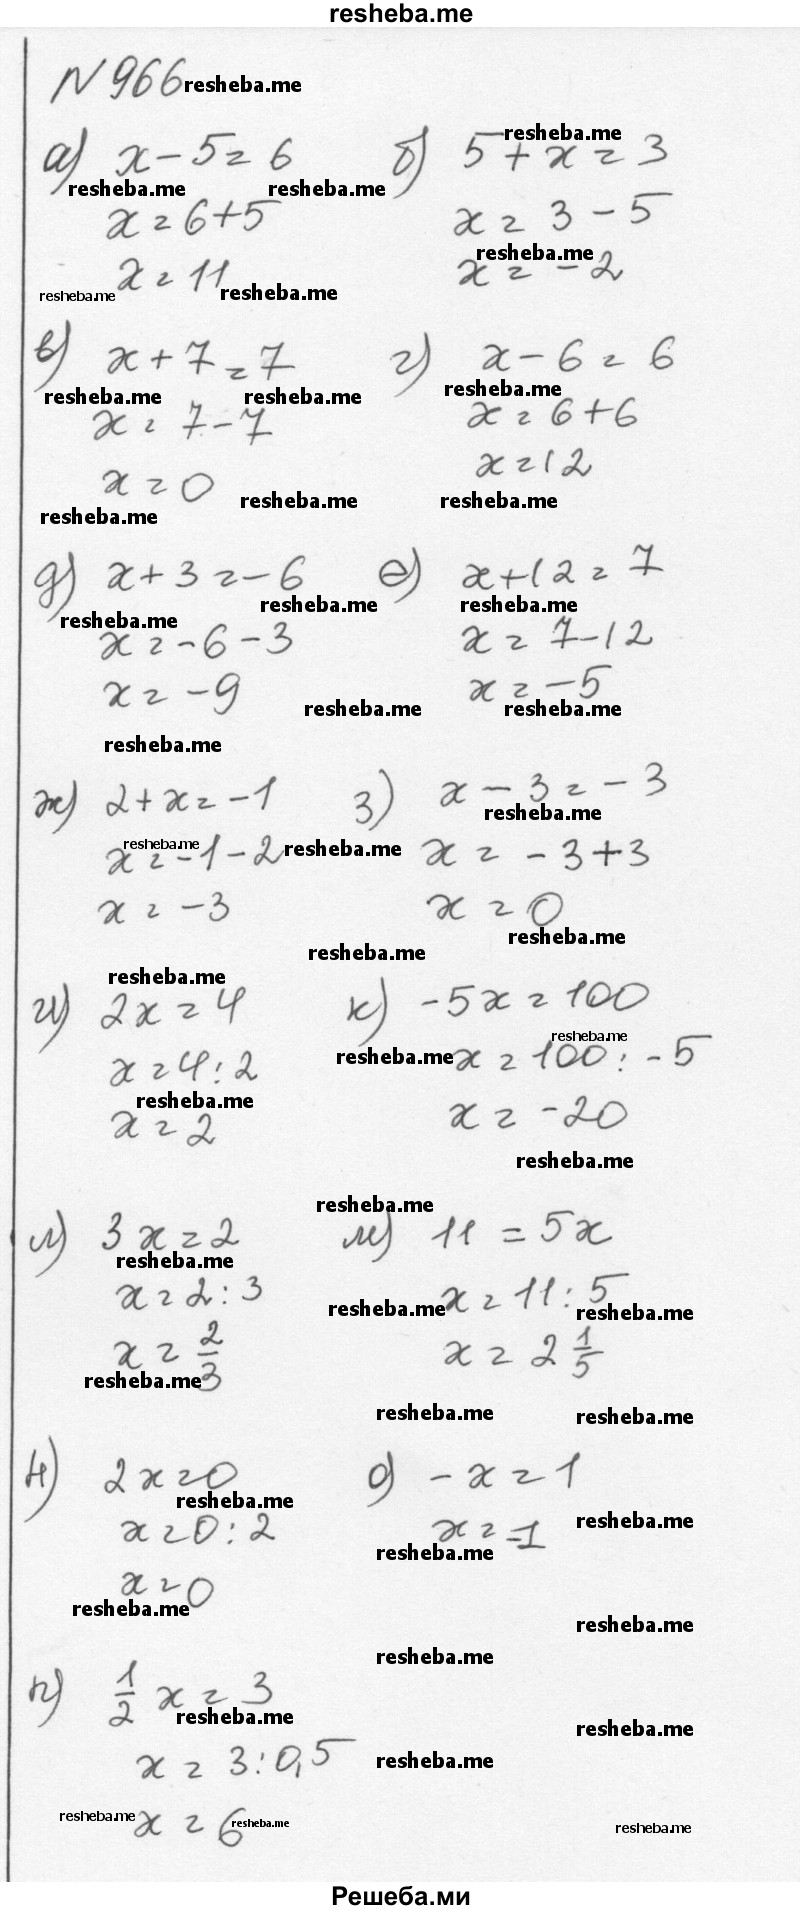 resheba.me
N 966 resheba.me
а) x - 5 = 6
resheba.me resheba.me
x = 6 + 5
x = 11
resheba.me resheba.me
б) 5 + x = 3
resheba.me
x = 3 - 5
resheba.me
x = -2
в) x + 7 = 7
resheba.me resheba.me
x = 7 - 7
x = 0
resheba.me resheba.me
г) x - 6 = 6
resheba.me
x = 6 + 6
x = 12
resheba.me
д) x + 3 = -6
resheba.me resheba.me
x = -6 - 3
x = -9
resheba.me
resheba.me
е) x + 12 = 7
resheba.me
x = 7 - 12
x = -5
resheba.me
ж) 2 + x = -1
resheba.me resheba.me
x = -1 - 2
x = -3
з) x - 3 = -3
resheba.me
x = -3 + 3
x = 0
resheba.me
resheba.me
resheba.me
и) 2x = 4
x = 4 : 2
resheba.me
x = 2
к) -5x = 100
resheba.me
resheba.me x = 100 : -5
x = -20
resheba.me
л) 3x = 2
resheba.me
x = 2 : 3
x = 2/3
resheba.me
resheba.me
м) 11 = 5x
resheba.me x = 11 : 5
resheba.me
x = 2 1/5
resheba.me resheba.me
н) 2x = 0
resheba.me
x = 0 : 2
x = 0
resheba.me
о) -x = 1
resheba.me
x = -1
resheba.me
resheba.me
resheba.me
п) 1/2 x = 3
resheba.me
resheba.me
x = 3 : 0,5
resheba.me
resheba.me x = 6 resheba.me
resheba.me
Решеба.ми